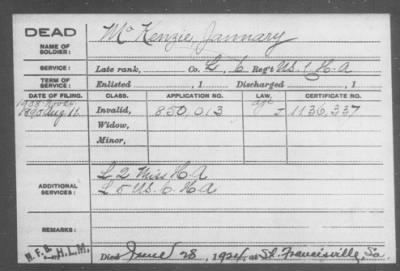 DEAD
NAME OF SOLDIER:
McKenzie, January
SERVICE:
Late rank, Co. L, 6 Reg't U.S. C. H. A
TERM OF SERVICE:
Enlisted , 1 Discharged , 1
DATE OF FILING. CLASS. APPLICATION NO. LAW. CERTIFICATE NO.
1890 Aug 11. Invalid, 850,013 1136,337
Widow,
Minor,
ADDITIONAL SERVICES:
L 2 Miss H.A
L 5 U.S. C. H.A
REMARKS:
H.L.M.
Died June 28, 1924, at St. Francisville, La.